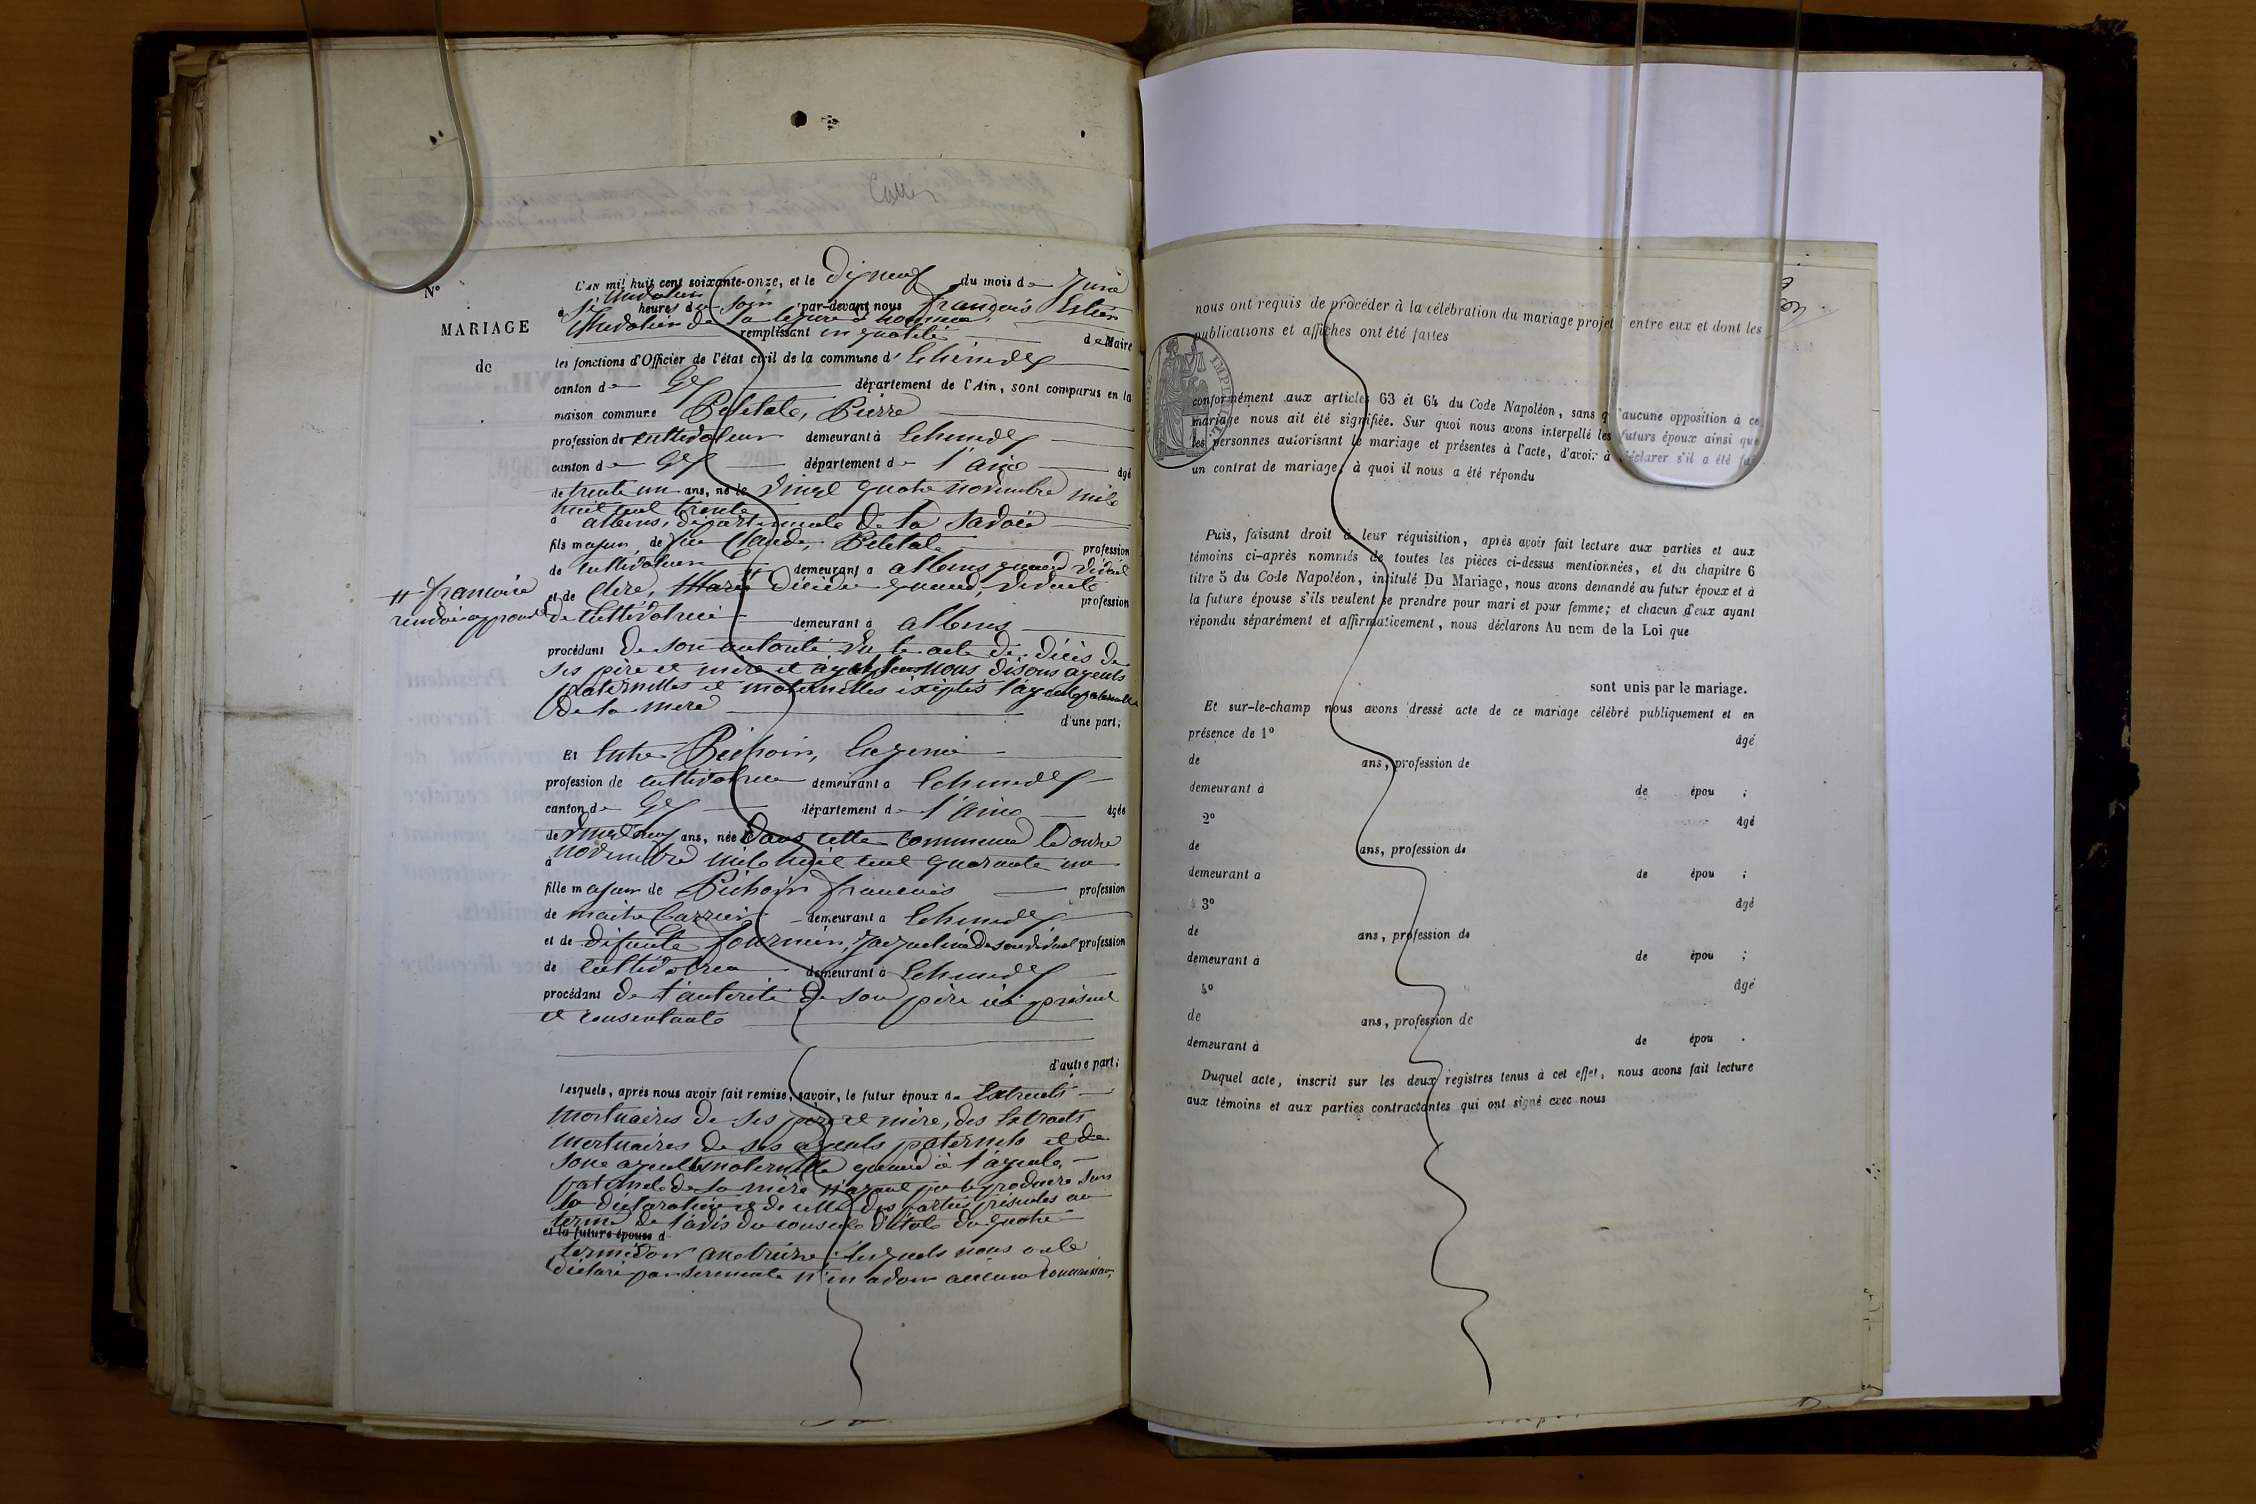 Carrier
N°
MARIAGE
de
L'AN mil huit cent soixante-onze, et le Dixneuf du mois de Juin
à six heures du soir par-devant nous françois Estier
Chevalier de la légion d'honneur,
remplissant en qualité de Maire
les fonctions d'Officier de l'état civil de la commune d'Echenevex
canton de Gex département de l'Ain, sont comparus en la
maison commune Pierre
profession de cultivateur demeurant à Echenevex
canton de Gex département de l'ain âgé
de trente un ans, né le vingt quatre novembre mil
huit cent trente
à albens, département de la Savoie
fils majeur de feu Claude,
profession
de cultivateur demeurant à albens quand vivait
et de Clere, Marie décédée quand vivait
profession
# françoise
renvoi approuvé
de cultivatrice demeurant à albens
procédant de son autorité vu les actes de décès de
ses père et mère et ayeuls nous disons ayeuls
paternelles et maternelles exeptés l'ayeul paternelle
de la mere
d'une part;
Et Entre Pichoin, Eugenie
profession de cultivatrice demeurant à Echenevex
canton de Gex département de l'ain âgée
de vingt neuf ans, née dans cette commune le onze
à novembre mil huit cent quarante un
fille majeur de Pichoin francois profession
de maitre Carrier demeurant à Echenevex
et de défunte fournier, Jacqueline de son vivant profession
de cultivatrice demeurant à Echenevex
procédant de l'autorité de son père ici présent
et consentant
d'autre part;
Lesquels, après nous avoir fait remise, savoir, le futur époux de Extraits
mortuaires de ses père et mère, des Extraits
mortuaires de ses ayeuls paternels et de
son ayeule maternelle quand à l'ayeule
paternel de sa mère n'ayant pu le produire sur
la déclaration et de celle des parties présentes au
terme de l'avis du conseil d'état du quatre
et la future épouse d
termidor an treize lesquels nous ont
déclaré par serment n'en avoir aucune connaissance,
nous ont requis de procéder à la célébration du mariage projet entre eux et dont les
publications et affiches ont été faites
TIMBRE IMPERIAL
conformément aux articles 63 et 64 du Code Napoléon, sans qu'aucune opposition à ce
mariage nous ait été signifiée. Sur quoi nous avons interpellé les futurs époux ainsi que
les personnes autorisant le mariage et présentes à l'acte, d'avoir à déclarer s'il a été fait
un contrat de mariage, à quoi il nous a été répondu
Puis, faisant droit à leur réquisition, après avoir fait lecture aux parties et aux
témoins ci-après nommés de toutes les pièces ci-dessus mentionnées, et du chapitre 6
titre 5 du Code Napoléon, intitulé Du Mariage, nous avons demandé au futur époux et à
la future épouse s'ils veulent se prendre pour mari et pour femme; et chacun d'eux ayant
répondu séparément et affirmativement, nous déclarons Au nom de la Loi que
sont unis par le mariage.
Et sur-le-champ nous avons dressé acte de ce mariage célébré publiquement et en
présence de 1° âgé
de ans, profession de
demeurant à de épou ;
2° âgé
de ans, profession de
demeurant à de épou ;
3° âgé
de ans, profession de
demeurant à de épou ;
4° âgé
de ans, profession de
demeurant à de épou .
Duquel acte, inscrit sur les deux registres tenus à cet effet, nous avons fait lecture
aux témoins et aux parties contractantes qui ont signé avec nous